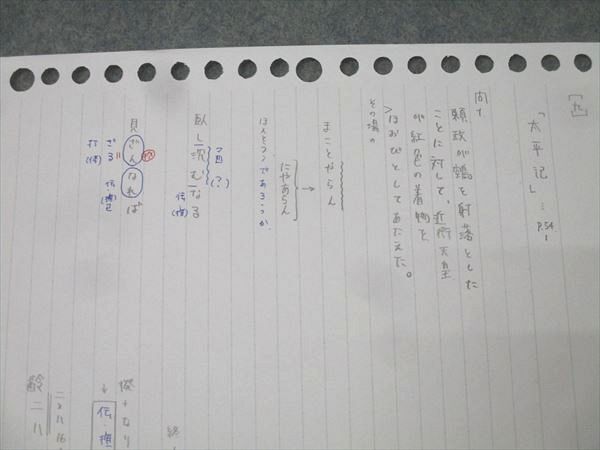 [九]
「太平記」… P.54〜
問1
頼政が鵺を射落とした
ことに対して、近衛天皇
が紅色の着物を
>ほおびとしてあたえた。
その場の
まことやらん
→
にやあらん
ほんとうであろうか
臥し沈むなる
(?)
伝(推)
見ざんなれば
ざる
打(体)
伝(推)已
終
↓
伝・推
二×八=16
齢二八